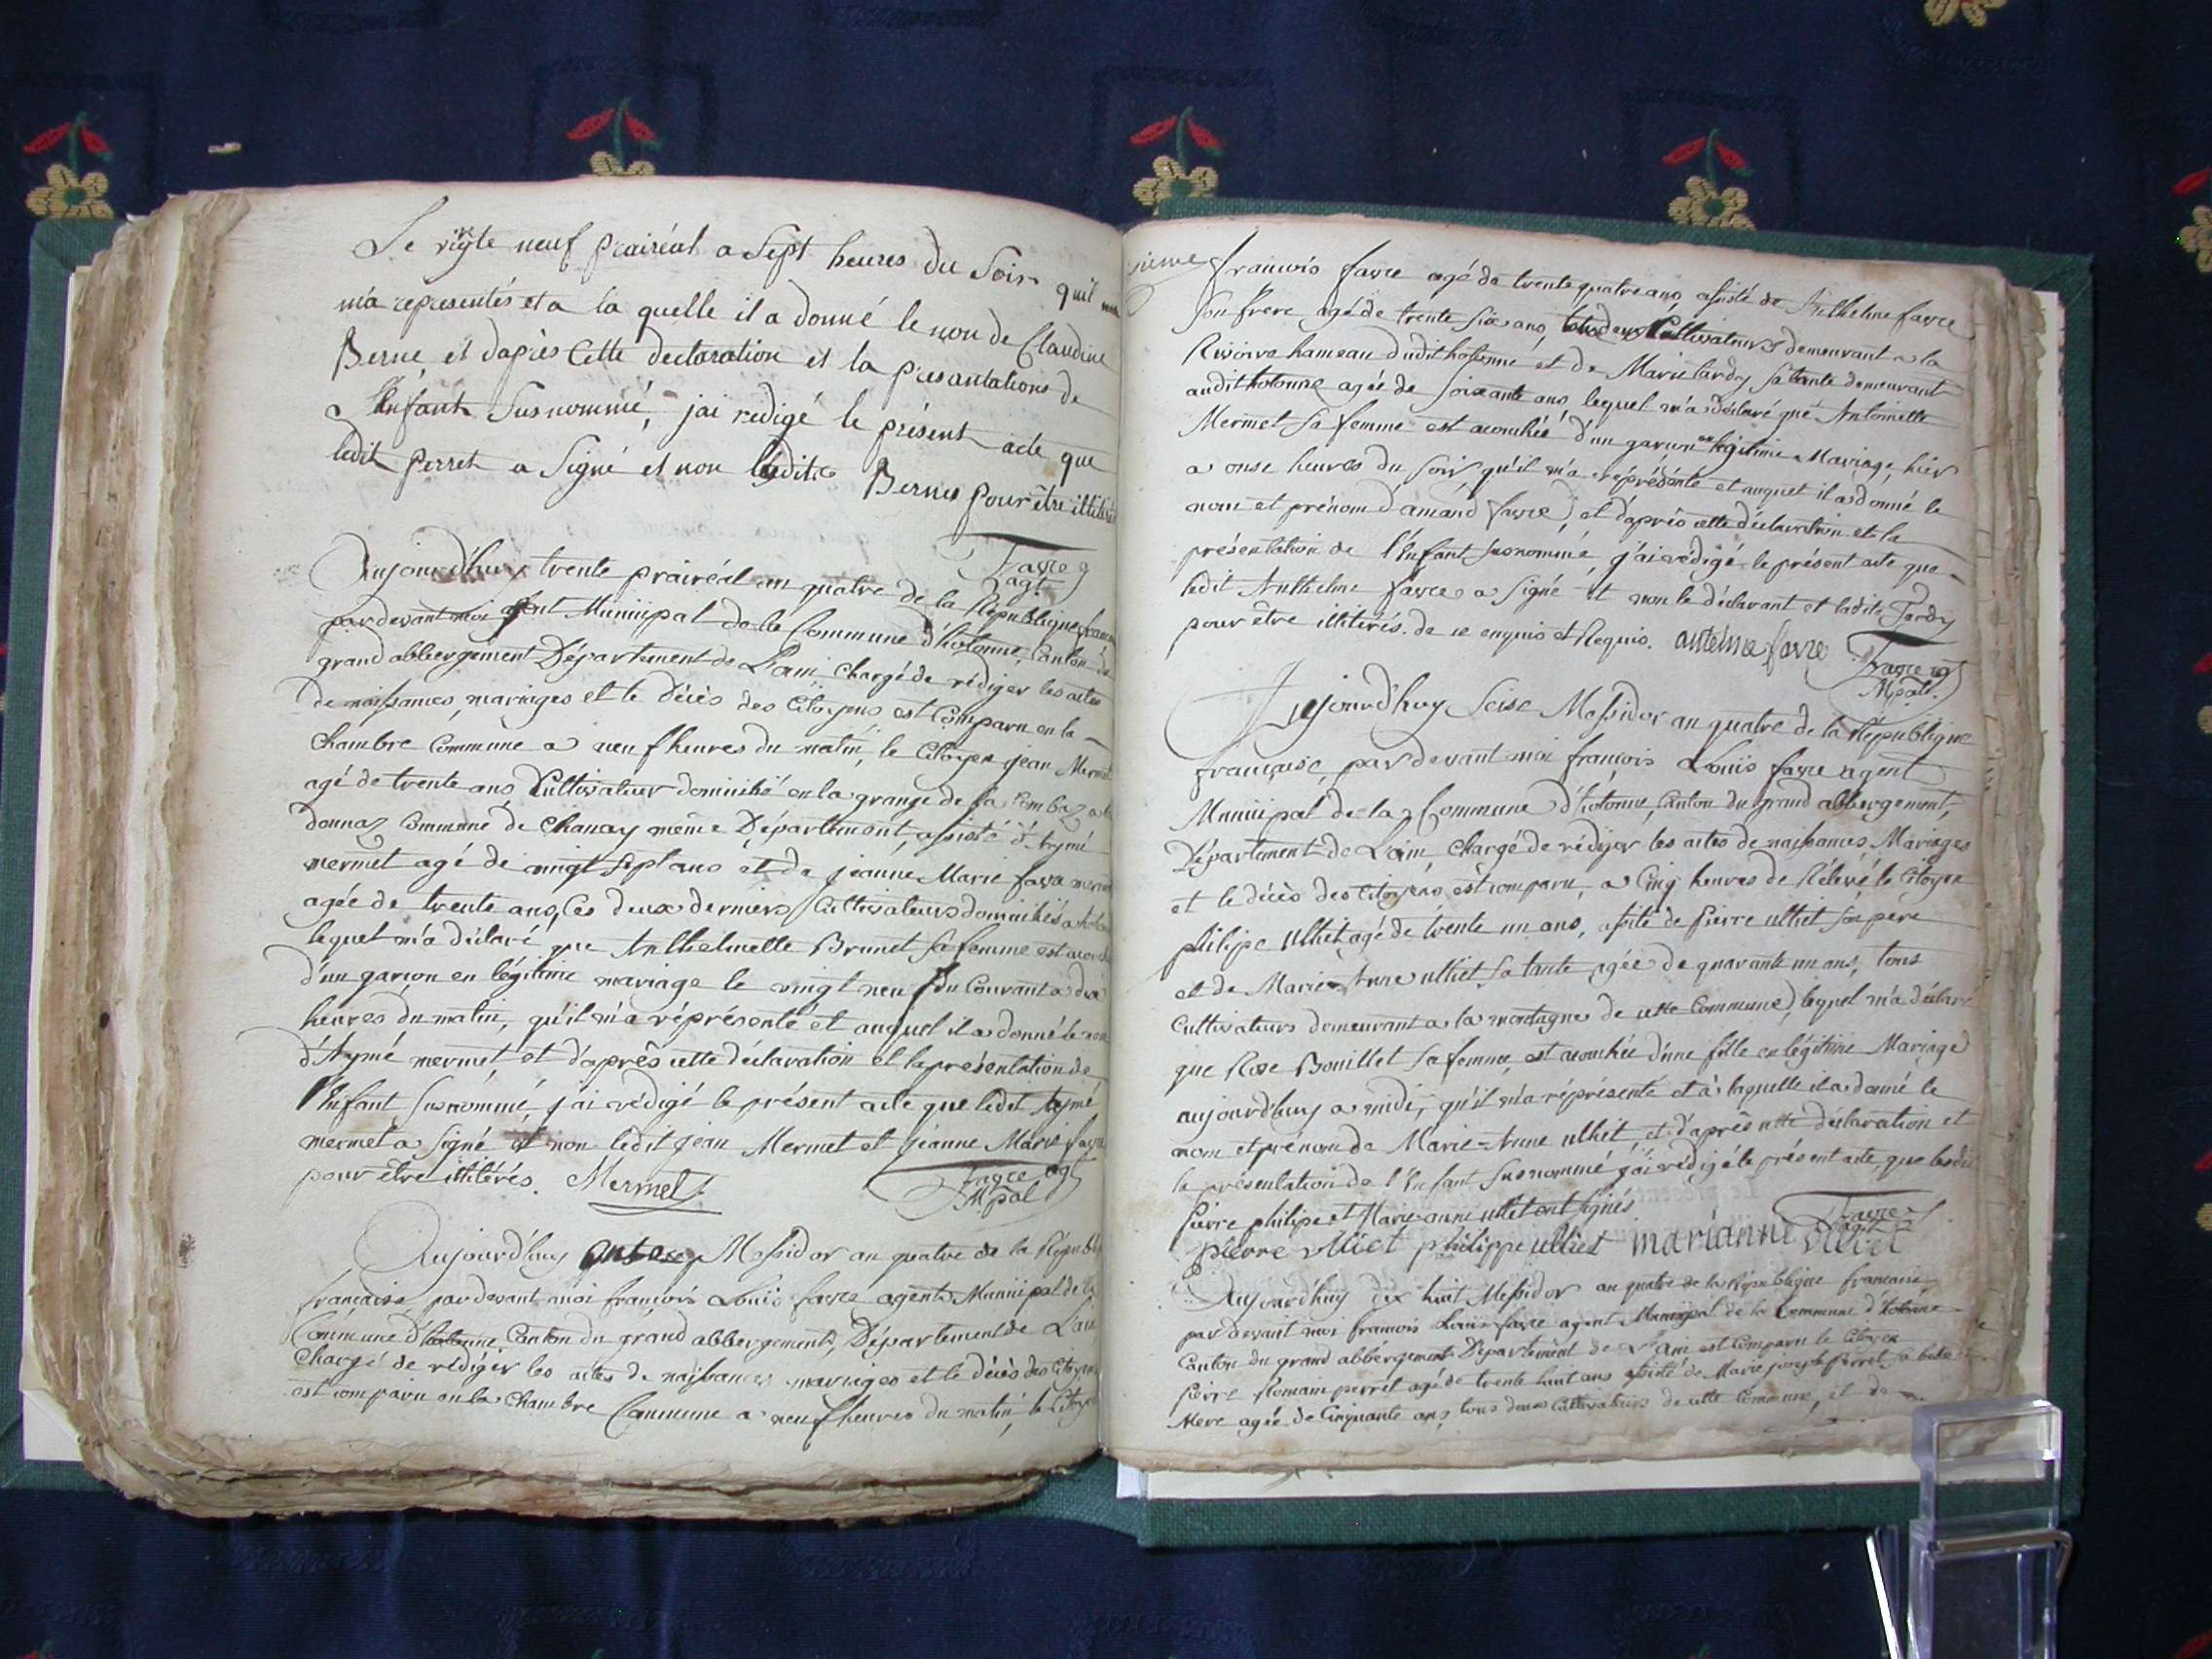 Le vingte neuf prairéal a Sept heures du Soir qu'il
m'a representés et a la quelle il a donné le nom de Claudine
Berne, et d'apiès Cette declaration et la presantations de
l'Enfant Susnommé, j'ai redigé le présent acte que
ledit perret a Signé et non ledite Berne pour être illiteré
Favre
agt
Aujourd'huy trente prairéal an quatre de la République
par devant moi agent Municipal de la Commune d'hotonne, Canton du
grand abbergement Département de L'ain, Chargé de rédiger les actes
de naissances, mariages et le Décès des Citoyens est Comparu en la
Chambre Commune a neuf heures du matin, le Citoyen jean Mermet
agé de trente ans Cultivateur domicilié en la grange de la Combaz
donnaz Commune de Chanay même Département, assisté d'Aymé
mermet agé de vingt sept ans et de jeanne Marie favre
agée de trente ans, Ces deux derniers Cultivateurs domiciliés a
lequel m'a déclaré que Anthelmette Brunet sa femme est
d'un garcon en légitime mariage le vingt neuf du Courant a dix
heures du matin, qu'il m'a réprésenté et auquel il a donné le nom
d'Aymé mermet, et d'après cette déclaration et la présentation de
l'Enfant susnommé, j'ai rédigé le présent acte que ledit Aymé
mermet a signé et non ledit jean Mermet et jeanne Marie favre
pour être illitérés. Mermet
Favre agt
Mpal
Aujourd'huy Messidor an quatre de la
française, par devant moi françois Louis favre agent Municipal de la
Commune d'hotonne, Canton du grand abbergement, Département de L'ain
Chargé de rédiger les actes de naissances mariages et le décès des Citoyens
est comparu en la Chambre Commune a neuf heures du matin, le Citoyen
francois favre agé de trente quatre ans, assisté de Anthelme favre
son frere agé de trente six ans, tous deux Cultivateurs demeurant a la
Rivoire hameau dudit hotonne et de Marie tardy sa tante demeurant
audit hotonne agée de soixante ans lequel m'a déclaré que Antoinette
Mermet sa femme est acouchée d'un garcon en légitime Mariage, hier
a onse heures du soir, qu'il m'a réprésenté et auquel il a donné le
nom et prénom d'amand favre, et d'après cette déclaration et la
présentation de l'Enfant susnommé, j'ai rédigé le présent acte que
ledit Anthelme favre a signé et non le déclarant et ladite Tardy
pour être illitérés. de ce enquis et Requis. antelme favre
Favre agt
Mpal.
Aujourd'huy Seise Messidor an quatre de la République
française, par devant moi françois Louis favre agent
Municipal de la Commune d'hotonne, Canton du grand abbergement,
Département de L'ain, Chargé de rédiger les actes de naissances Mariages
et le décès des Citoyens, est comparu, a Cinq heures de Rélevé le Citoyen
philipe Ulliet agé de trente un ans, assité de Pierre ulliet son pere
et de Marie-Anne ulliet sa tante agée de quarante un ans, tous
Cultivateurs demeurant a la montagne de cette Commune, lequel m'a déclaré
que Rose Bouillet sa femme, est acouchée d'une fille en légitime Mariage
aujourd'huy a midi, qu'il m'a réprésenté et à laquelle il a donné le
nom et prénom de Marie-Anne ulliet, et d'après cette déclaration et
la présentation de l'Enfant Susnommé j'ai rédigé le présent acte que
Pierre philipe et Marie anne ulliet ont signés
Favre
agt
pierre ulliet philippe ulliet marianne ulliet
Aujourd'huy dix huit Messidor an quatre de la République francaise
par devant moi francois Louis favre agent Municipal de la Commune d'hotonne
Canton du grand abbergement Département de L'ain est Comparu le Citoyen
Pierre Romain perret agé de trente huit ans assisté de Marie joseph perret sa belle
Mere agée de Cinquante ans, tous deux Cultivateurs de cette Commune, et de